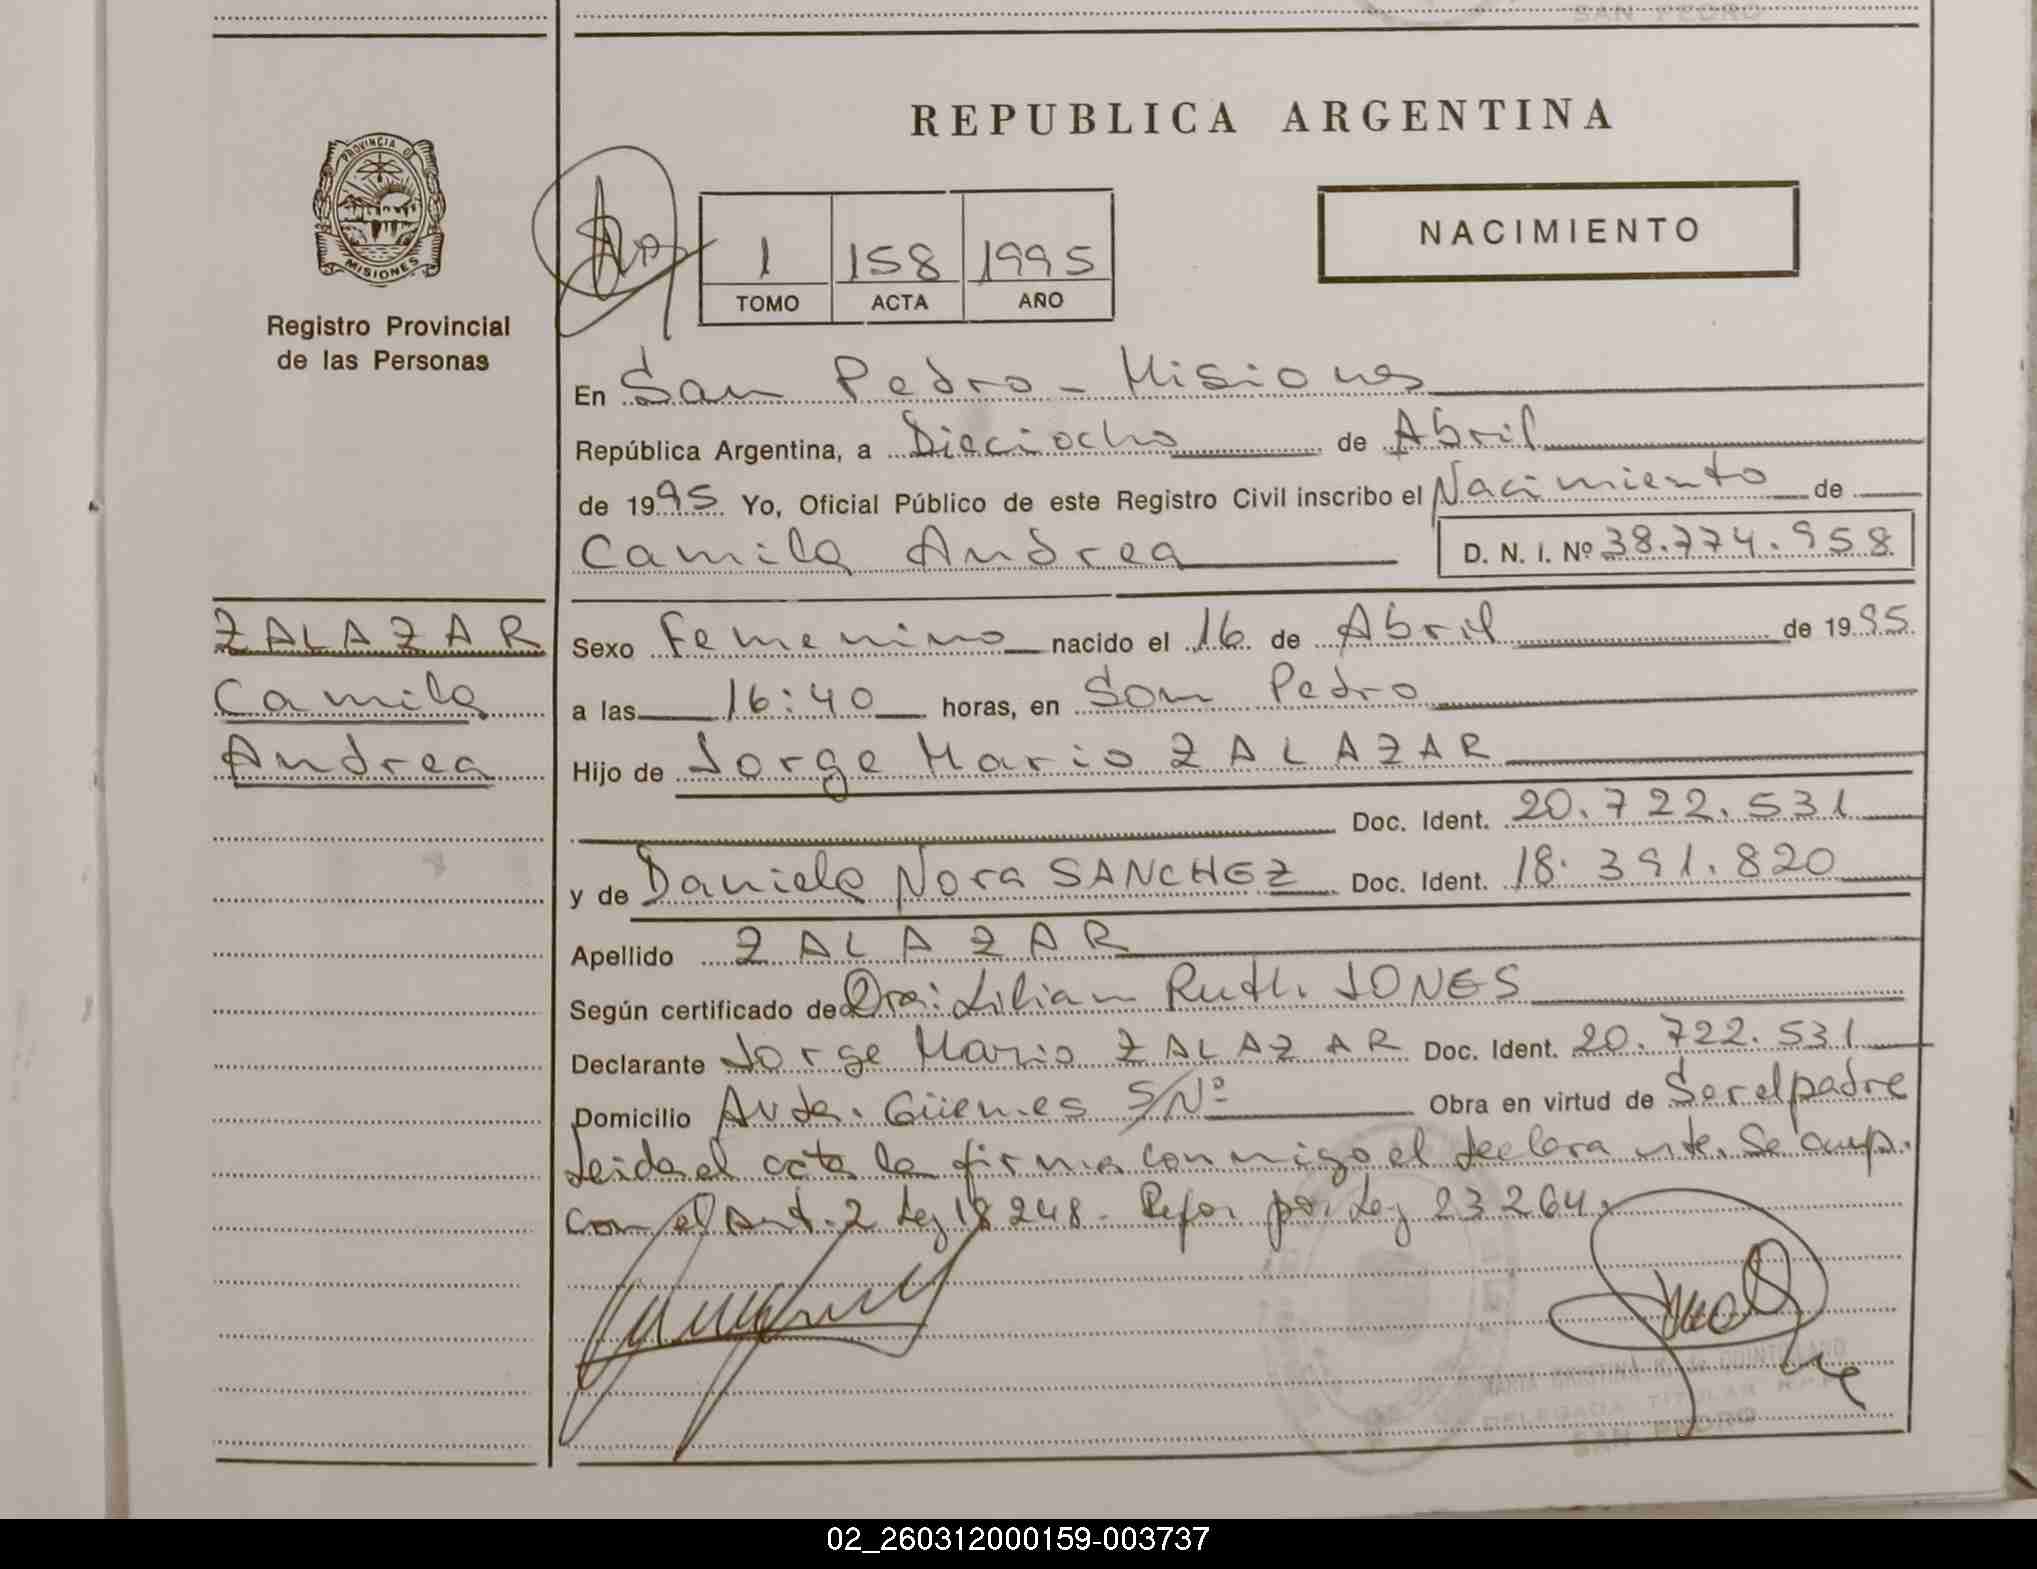 SAN PEDRO
REPUBLICA ARGENTINA
PROVINCIA D
MISIONES
NACIMIENTO
1 158 1995
TOMO ACTA AÑO
Registro Provincial
de las Personas
En San Pedro - Misiones
República Argentina, a Dieciocho de Abril
de 1995 Yo, Oficial Público de este Registro Civil inscribo el Nacimiento de
Camila Andrea D. N. I. Nº 38.774.958
ZALAZAR
Camila
Andrea
Sexo Femenino nacido el 16 de Abril de 1995
a las 16:40 horas, en San Pedro
Hijo de Jorge Mario ZALAZAR
Doc. Ident. 20.722.531
y de Daniela Nora SANCHEZ Doc. Ident. 18.391.820
Apellido ZALAZAR
Según certificado de Dra: Lilian Ruth JONES
Declarante Jorge Mario ZALAZAR Doc. Ident. 20.722.531
Domicilio Avda. Güemes S/Nº Obra en virtud de Ser el padre
Leida el acta la firma conmigo el declarante. Se cump.
con el Art. 2 Ley 18248 - Refor por Ley 23264.
MARIA CRISTINA
DELEGADA TITULAR
SAN PEDRO
02_260312000159-003737